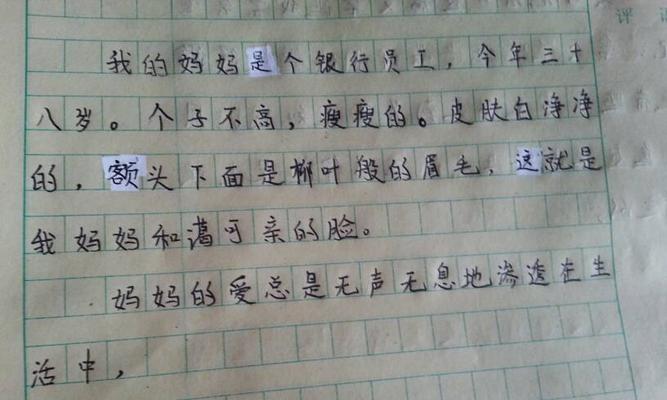 我的妈妈是个银行员工,今年三十
八岁。个子不高,瘦瘦的。皮肤白净净
的,额头下面是柳叶般的眉毛,这就是
我妈妈和蔼可亲的脸。
妈妈的爱总是无声无息地渗透在生
活中,